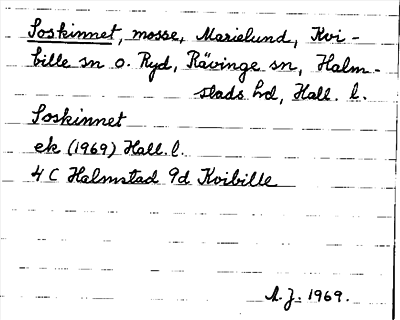 Soskinnet, mosse, Marielund, Kvi-
bille sn o. Ryd, Rävinge sn, Halm-
stads hd, Hall. l.
Soskinnet
ek (1969) Hall. l.
4 C Halmstad 9d Kvibille
A.J. 1969.